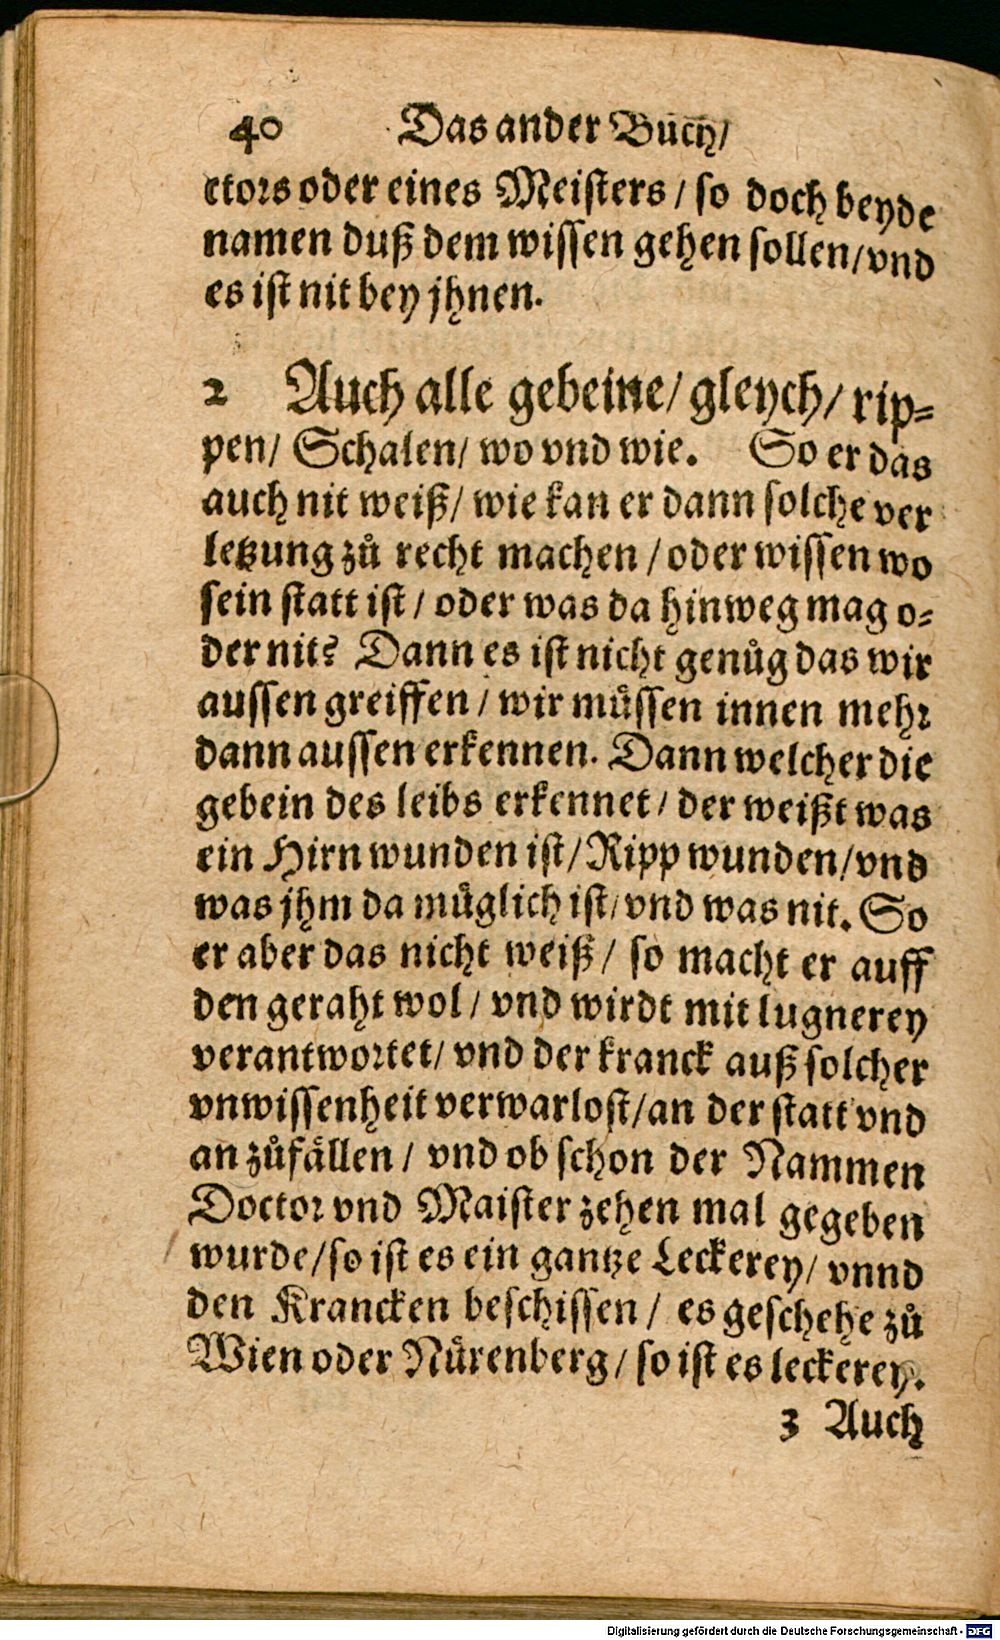 40 Das ander Buch/
ctors oder eines Meisters / so doch beyde
namen duß dem wissen gehen sollen/vnd
es ist nit bey jhnen.
2 Auch alle gebeine/ gleych/ rip=
pen/ Schalen/ wo vnd wie. So er das
auch nit weiß/ wie kan er dann solche ver
letzung zů recht machen / oder wissen wo
sein statt ist / oder was da hinweg mag o=
der nit? Dann es ist nicht genůg das wir
aussen greiffen / wir müssen innen mehr
dann aussen erkennen. Dann welcher die
gebein des leibs erkennet / der weißt was
ein Hirn wunden ist/ Ripp wunden/vnd
was jhm da müglich ist/ vnd was nit. So
er aber das nicht weiß / so macht er auff
den geraht wol / vnd wirdt mit lugnerey
verantwortet/ vnd der kranck auß solcher
vnwissenheit verwarlost/an der statt vnd
an zůfällen / vnd ob schon der Nammen
Doctor vnd Maister zehen mal gegeben
wurde/so ist es ein gantze Leckerey/ vnnd
den Krancken beschissen / es geschehe zů
Wien oder Nürenberg / so ist es leckerey.
3 Auch
Digitalisierung gefördert durch die Deutsche Forschungsgemeinschaft - DFG